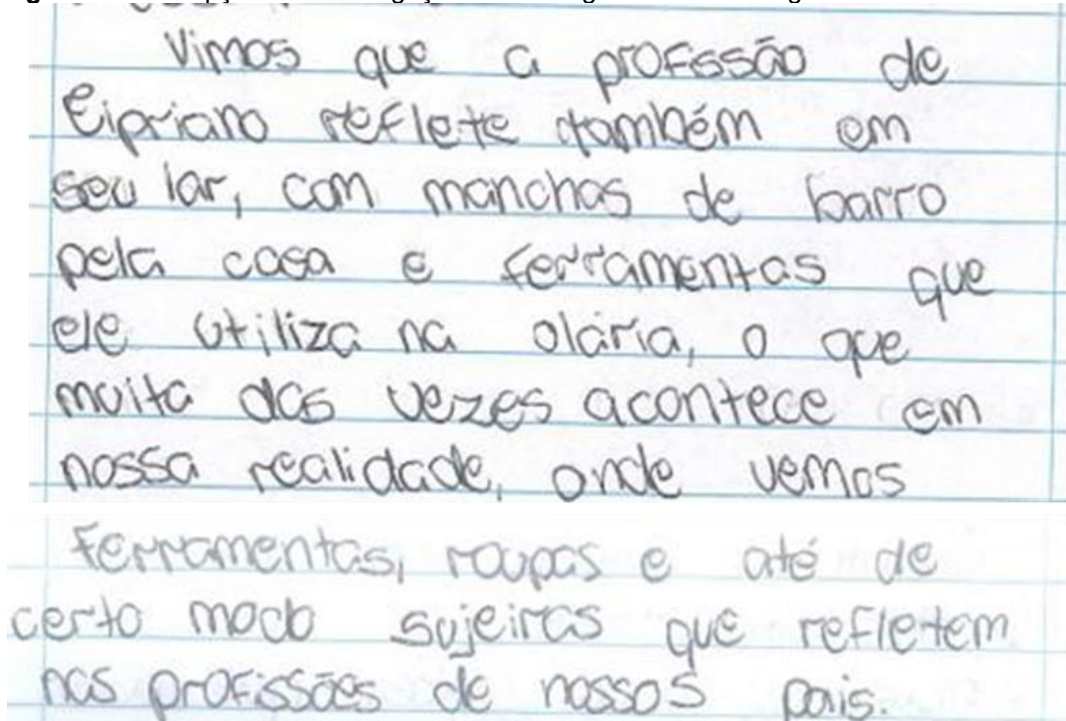 Vimos que a profissão de
Cipriano reflete também em
seu lar, com manchas de barro
pela casa e ferramentas que
ele utiliza na olária, o que
muita das vezes acontece em
nossa realidade, onde vemos
ferramentas, roupas e até de
certo modo sujeiras que refletem
nas profissões de nossos pais.